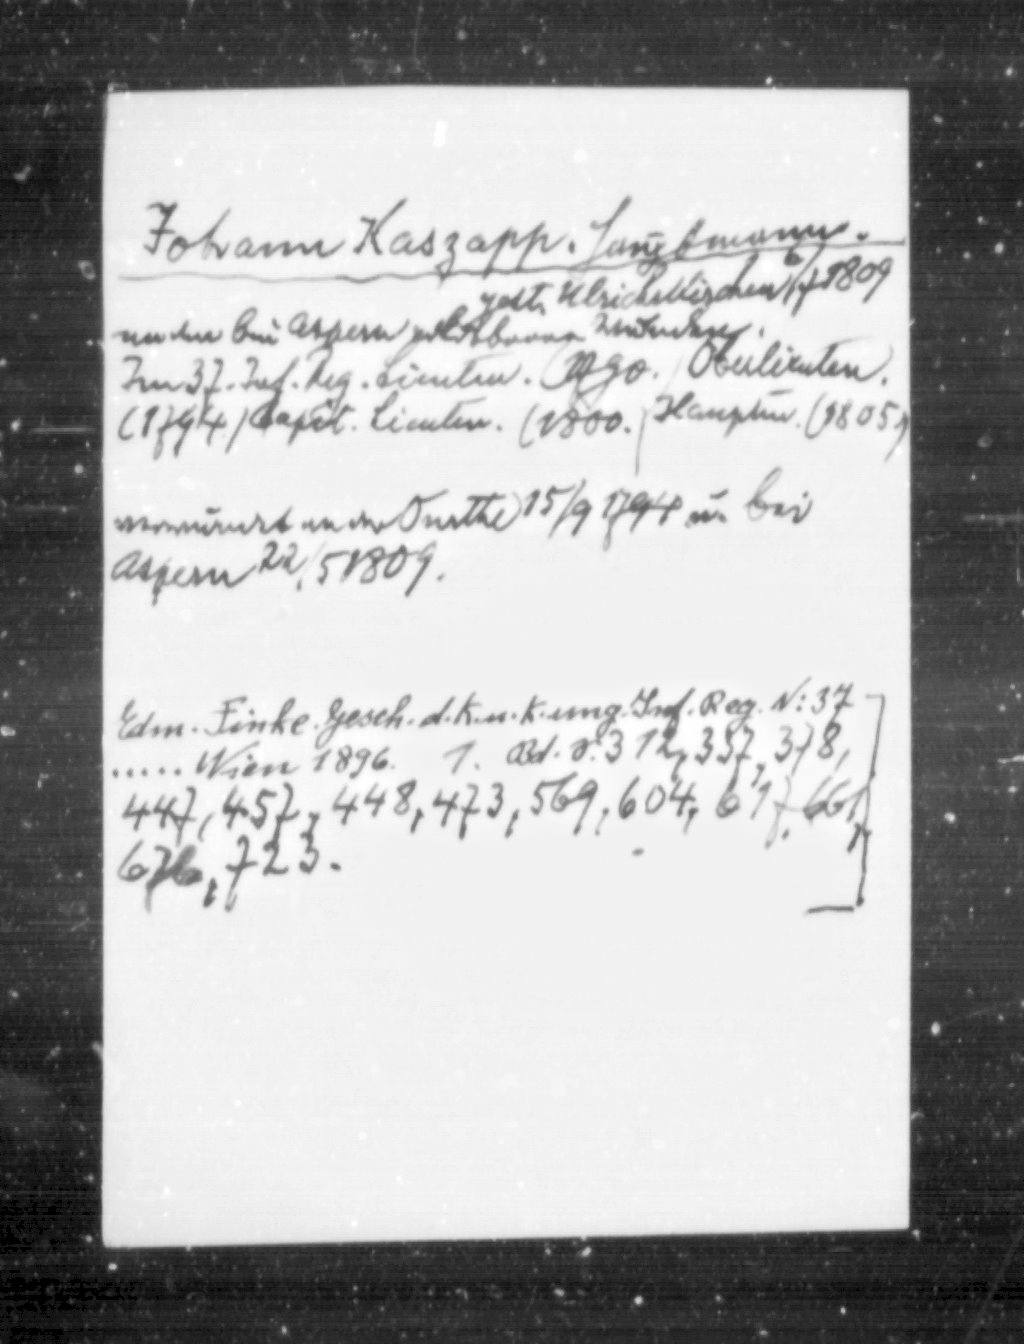 Johann Kaszapp. Hauptmann.
gest. Ulrichskirchen 6/7 1809
an den bei Aspern erhaltenen Wunden.
Im 37. Inf. Reg. Lieuten. (1790.) Oberlieuten.
(1794.) Capit. Lieuten. (1800.) Hauptm. (1805)
verwundet an der Ourthe 15/9 1794 u. bei
Aspern 22/5 1809.
Edm. Finke. Gesch. d. k. u. k. ung. Inf. Reg. N: 37
..... Wien 1896. 1. Bd. S: 312, 337, 378,
447, 457, 448, 473, 569, 604, 617, 661,
676, 723.